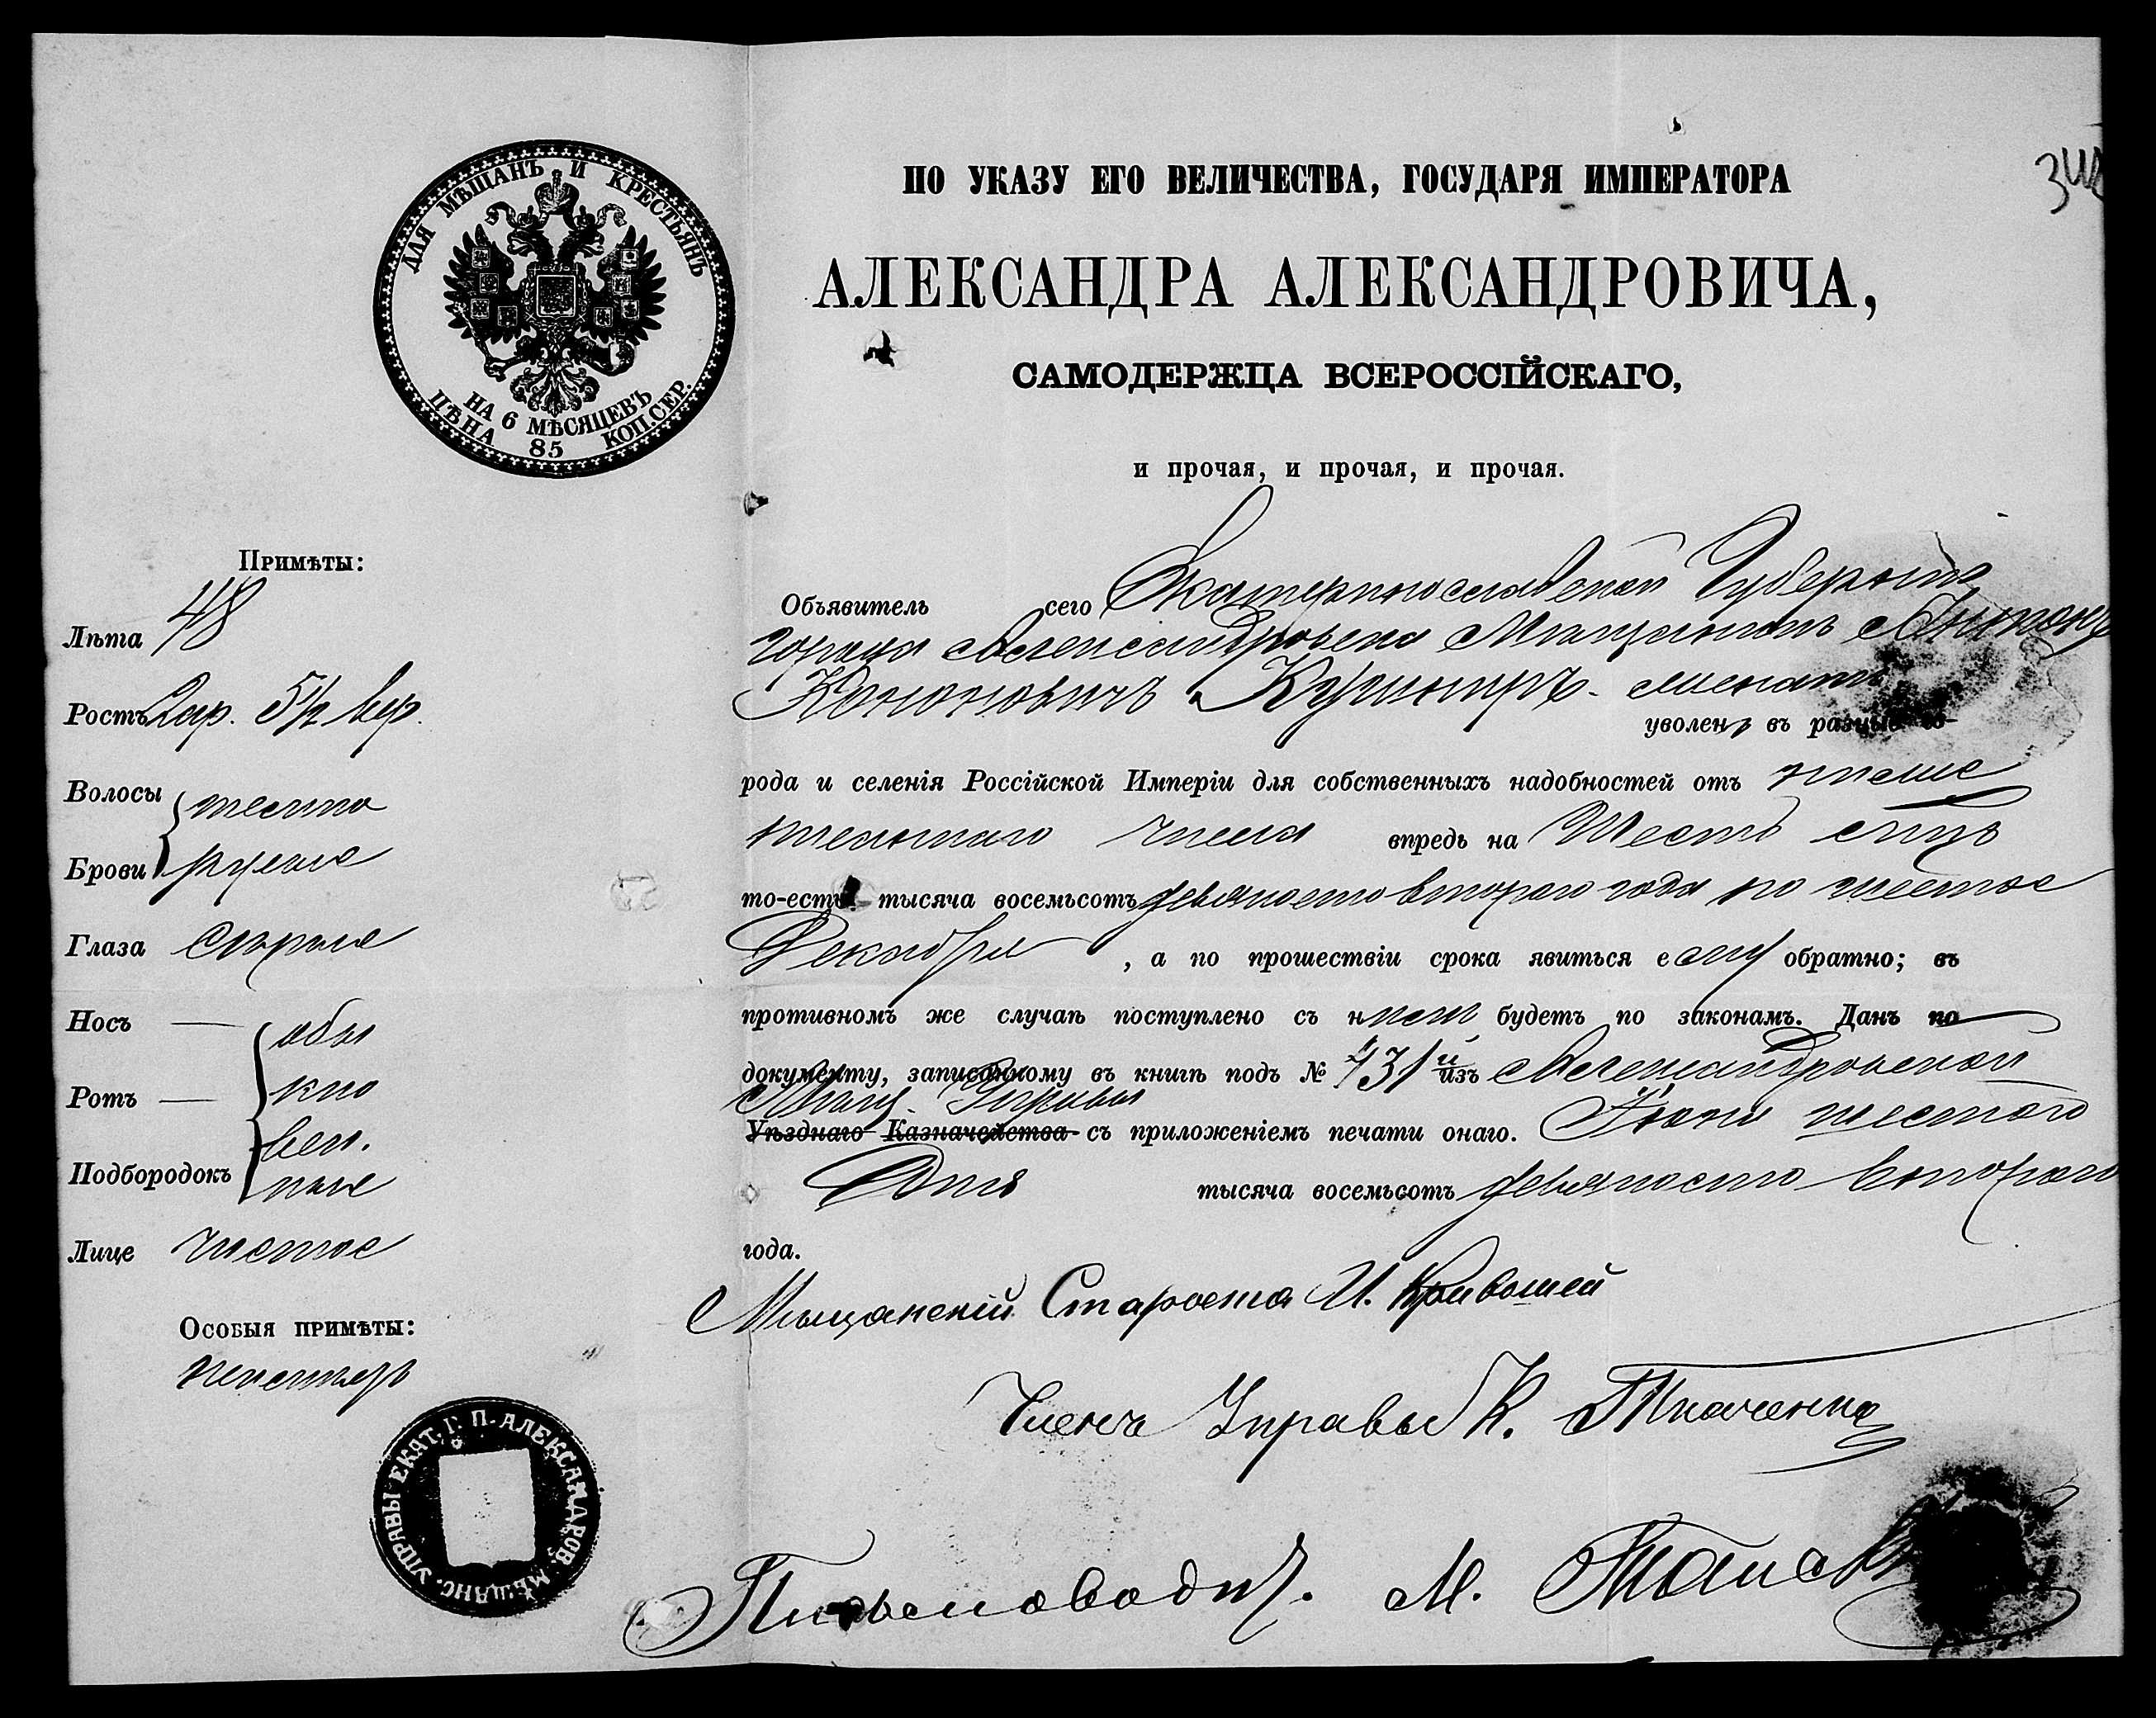 ДЛЯ МѢЩАНЪ И КРЕСТЬЯНЪ
НА 6 МѢСЯЦЕВЪ
ЦѢНА 85 КОП. СЕР.
ПО УКАЗУ ЕГО ВЕЛИЧЕСТВА, ГОСУДАРЯ ИМПЕРАТОРА
АЛЕКСАНДРА АЛЕКСАНДРОВИЧА,
САМОДЕРЖЦА ВСЕРОССІЙСКАГО,
и прочая, и прочая, и прочая.
Примѣты:
Лѣта 48
Ростъ 2 ар. 5 1/2 вер.
Волосы темно
Брови русые
Глаза сѣрые
Носъ — обы
Ротъ — кно
вен.
Подбородокъ ные
Лице чистое
Особыя примѣты:
УПРАВЫ ЕКАТ. Г. П. АЛЕКСАНДРОВ. МѢЩАНС.
Объявитель сего Екатеринославской Губерніи
города Александровска Мѣщанинъ Антонъ
Кононовичъ Кушниръ
уволенъ въ разные го-
рода и селенія Россійской Имперіи для собственныхъ надобностей отъ ниже
писаннаго числа впредь на Шесть мѣс.
то-есть: тысяча восемьсотъ девяносто втораго года по шестое
Декабря, а по прошествіи срока явиться ему обратно; въ
противномъ же случаѣ поступлено съ нимъ будетъ по законамъ. Данъ по
документу, записанному въ книгѣ подъ № 431й изъ Александровской
Мѣщ. Управы
Уѣзднаго Казначейства съ приложеніемъ печати онаго. Іюня шестого
Дня тысяча восемьсотъ девяносто втораго
года.
Мѣщанскій Староста И. Кривошей
Членъ Управы К. Ткаченко
Письмоводит. М.